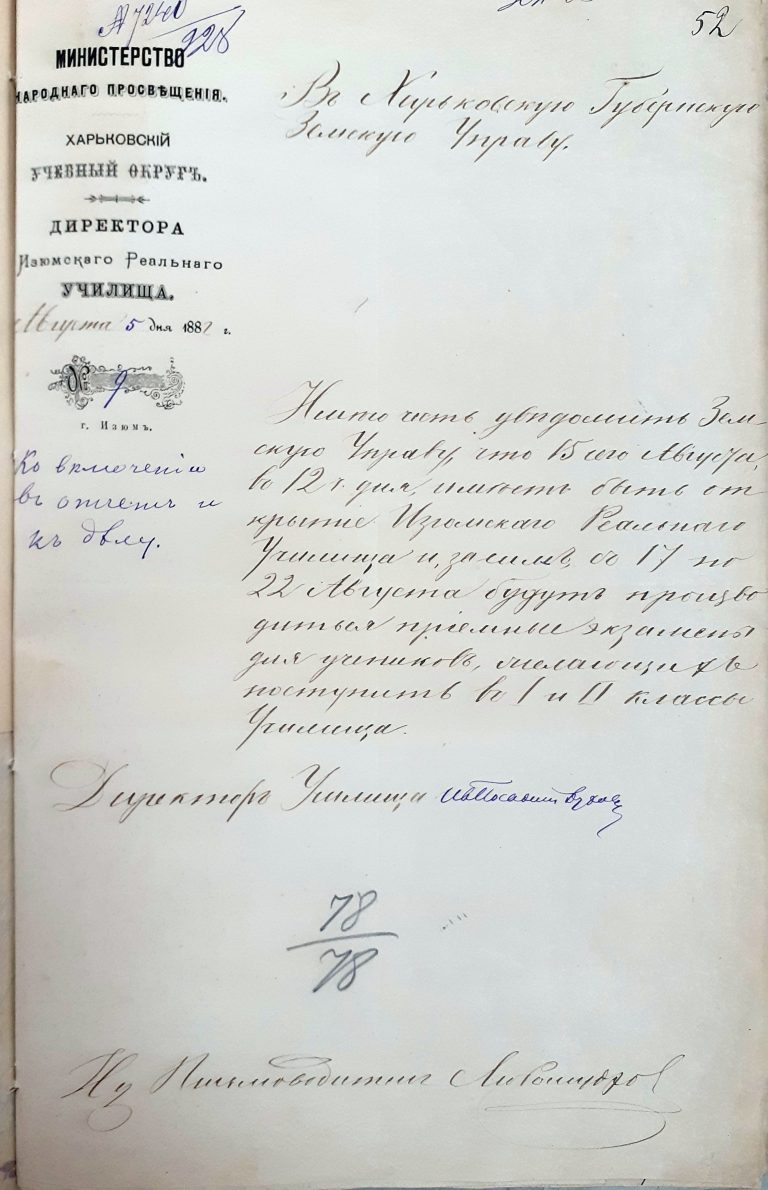 № 7240
928
52
МИНИСТЕРСТВО
НАРОДНАГО ПРОСВѢЩЕНІЯ.
ХАРЬКОВСКІЙ
УЧЕБНЫЙ ОКРУГЪ.
ДИРЕКТОРА
Изюмскаго Реальнаго
УЧИЛИЩА.
Августа 5 дня 1882 г.
№ 9
г. Изюмъ.
Къ включенію
въ отчетъ и
къ дѣлу.
Въ Харьковскую Губернскую
Земскую Управу.
Имѣю честь увѣдомить Зем-
скую Управу, что 15 сего Августа,
въ 12 ч. дня, имѣетъ быть от
крытіе Изюмскаго Реальнаго
Училища и, засимъ, съ 17 по
22 Августа будутъ произво
диться пріемные экзамены
для учениковъ, желающихъ
поступить въ I и II классы
Училища.
Директоръ Училища
78
78
Письмоводителя